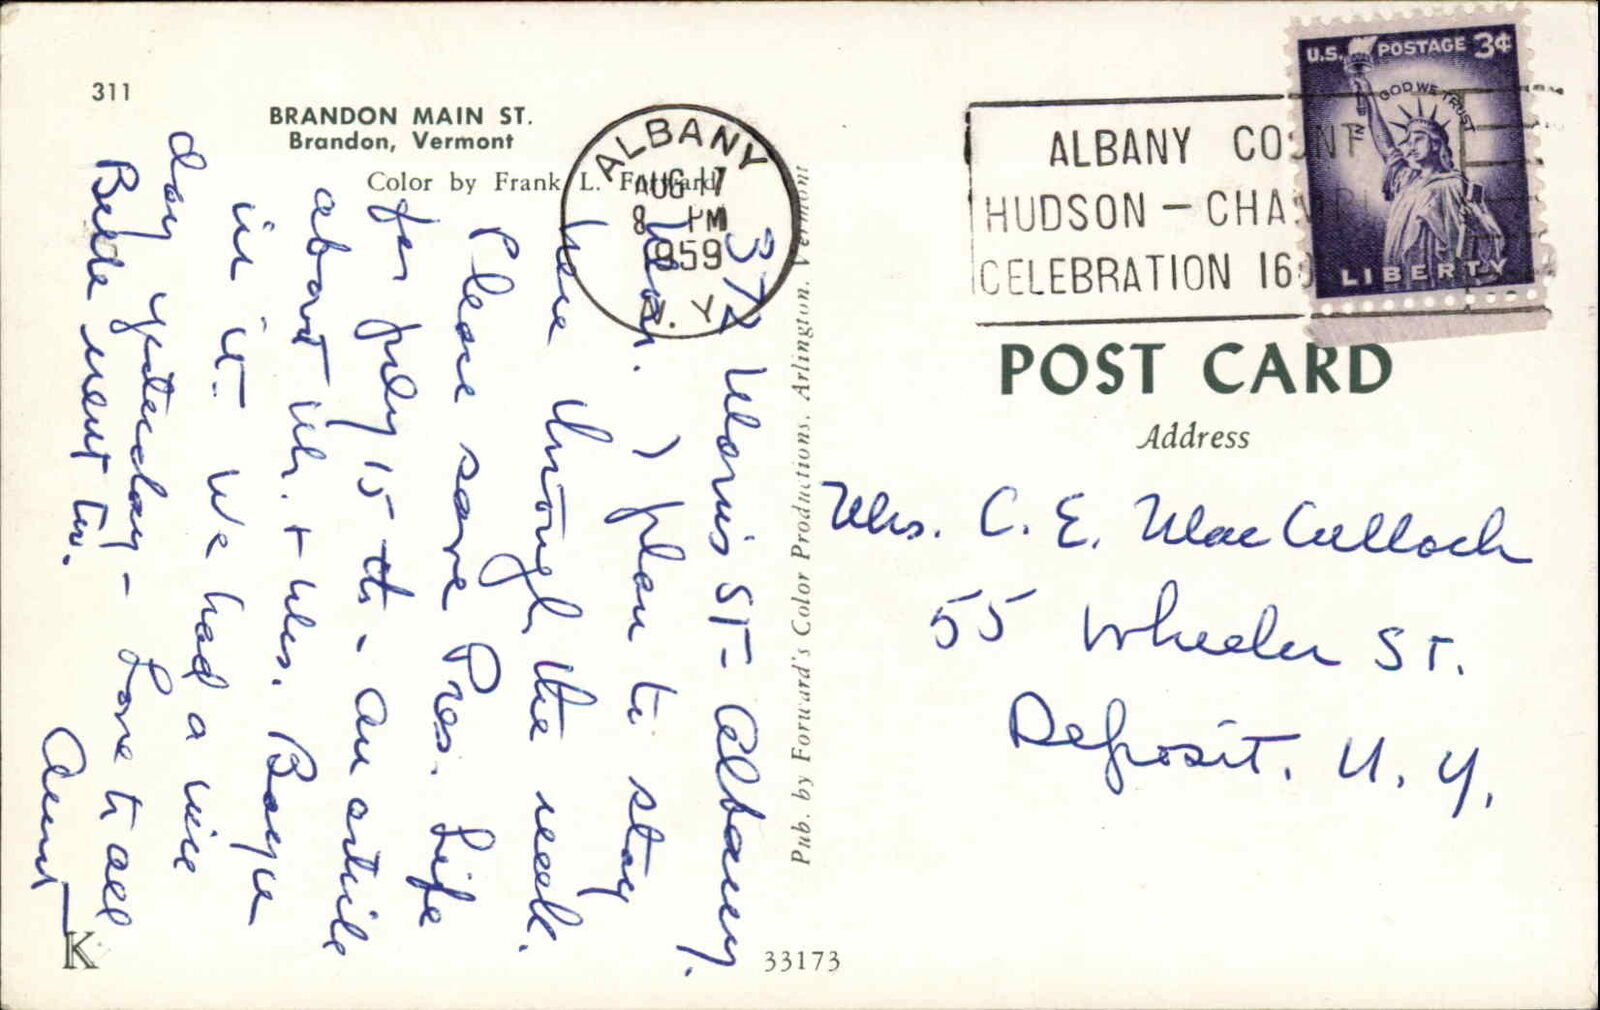 311
BRANDON MAIN ST.
Brandon, Vermont
Color by Frank L. Forward
372 Morris St- Albany.
Mon. I plan to stay
here through the week.
Please save Pres. Life
for July 15th - An article
about Mr. + Mrs.
in it- We had a nice
day yesterday - Love to all
went too.
Aunt
K
33173
Pub. by Forward's Color Productions, Arlington, Vermont
ALBANY
AUG 17
8 PM
1959
N. Y.
ALBANY COUNT
HUDSON - CHAMPL
CELEBRATION 16
U.S. POSTAGE 3¢
IN GOD WE TRUST
LIBERTY
POST CARD
Address
Mrs. C. E. MacCulloch
55 Wheeler St.
Deposit, N. Y.